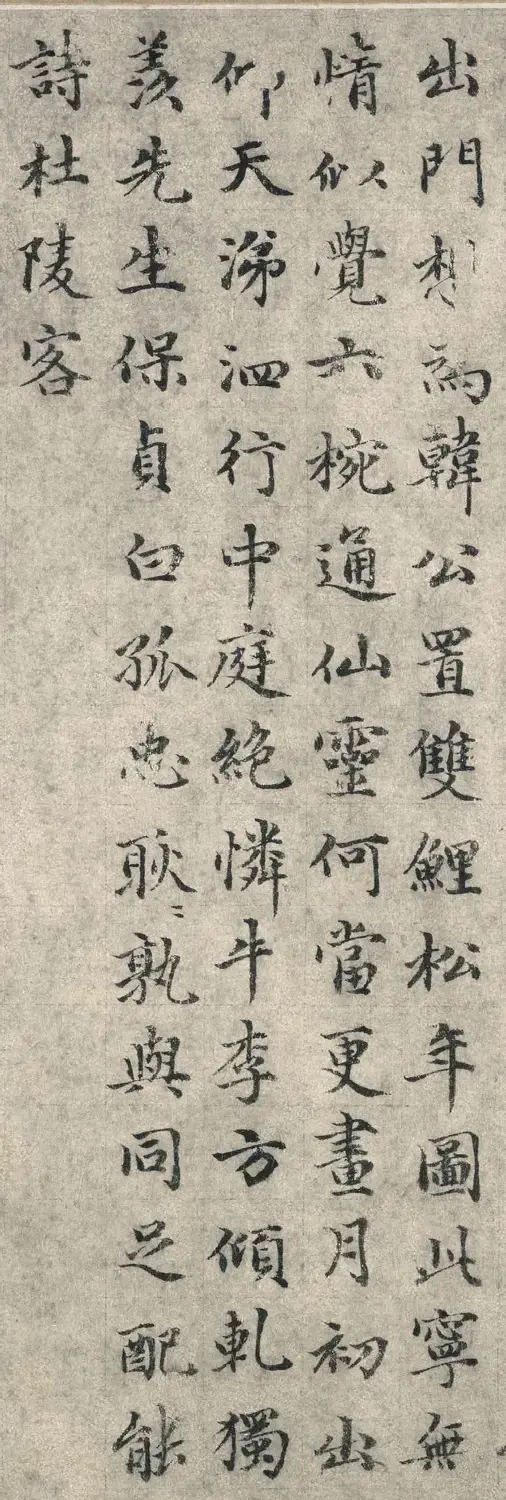 出門想為韓公置雙鯉松年圖此寧無
情似覺六椀通仙靈何當更畫月初出
仰天涕泗行中庭絶憐牛李方傾軋獨
羨先生保貞白孤忠耿〻孰與同足配能
詩杜陵客